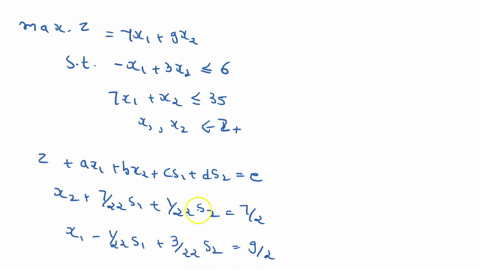 max. Z = 7x₁ + 9x₂
s.t. -x₁ + 3x₂ ≤ 6
7x₁ + x₂ ≤ 35
x₁, x₂ ∈ Z₊
Z + ax₁ + bx₂ + cs₁ + ds₂ = e
x₂ + 7/22 s₁ + 1/22 s₂ = 7/2
x₁ - 1/22 s₁ + 3/22 s₂ = 9/2